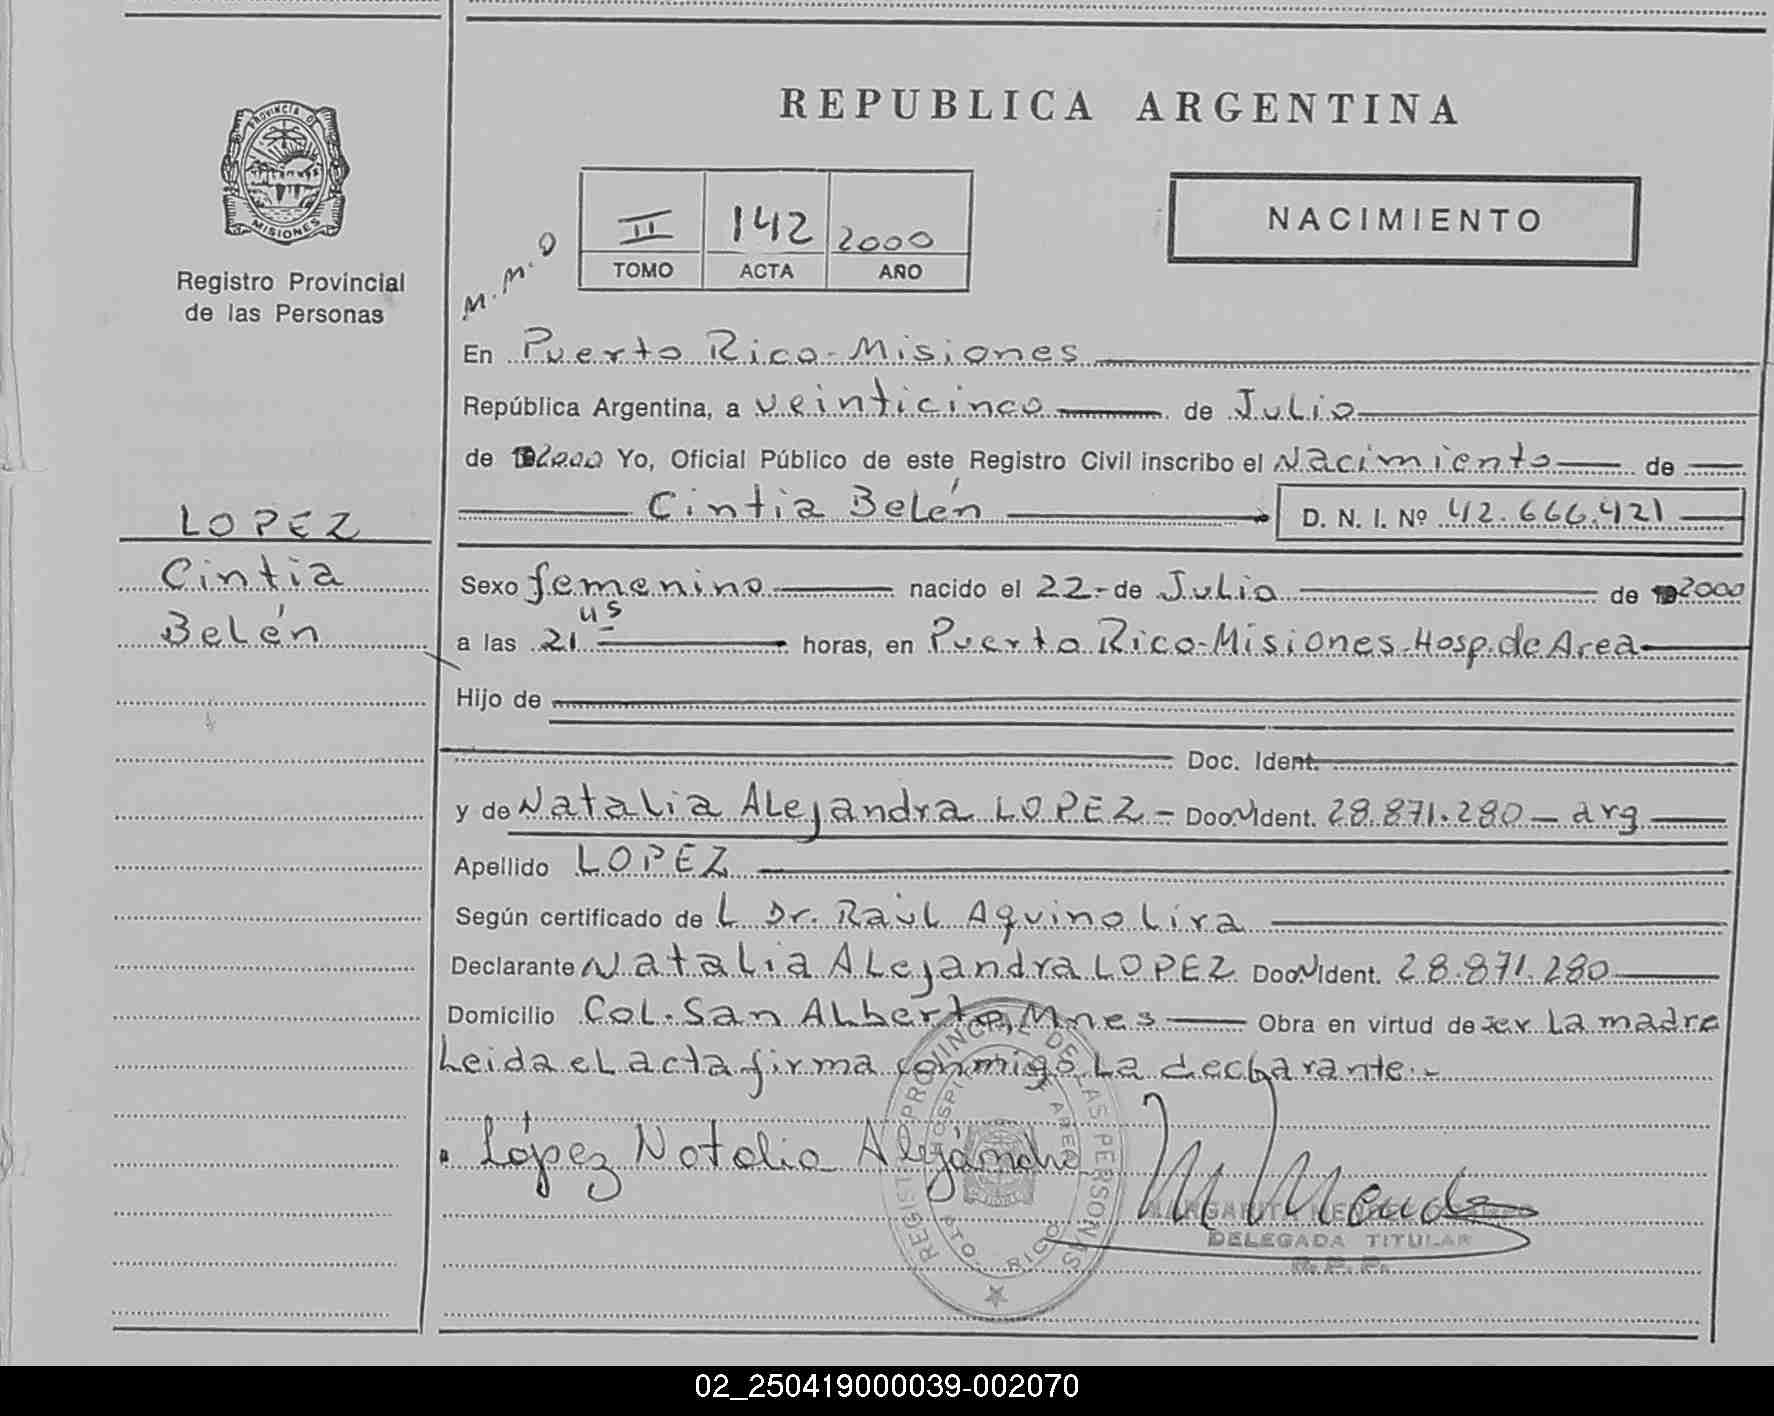 PROVINCIA DE
MISIONES
Registro Provincial
de las Personas
LOPEZ
Cintia
Belén
REPUBLICA ARGENTINA
NACIMIENTO
M.M.O
II 142 2000
TOMO ACTA AÑO
En Puerto Rico-Misiones
República Argentina, a veinticinco de Julio
de 2000 Yo, Oficial Público de este Registro Civil inscribo el Nacimiento de
Cintia Belén D. N. I. Nº 42.666.421
Sexo femenino nacido el 22- de Julio de 2000
a las 21 horas, en Puerto Rico-Misiones-Hosp.de Area
Hijo de
Doc. Ident.
y de Natalia ALejandra LOPEZ - Doc. Ident. 28.871.280 - arg
Apellido LOPEZ
Según certificado de L Dr. Raúl Aquino Lira
Declarante Natalia ALejandra LOPEZ Doc. Ident. 28.871.280
Domicilio Col. San Alberto, Mnes Obra en virtud de ser La madre
Leida el acta firma conmigo La declarante.-
López Natalia Alejandra
REGISTRO PROVINCIAL DE LAS PERSONAS
HOSPI AREA
PTO. RICO
DELEGADA TITULAR
R.P.P.
02_250419000039-002070